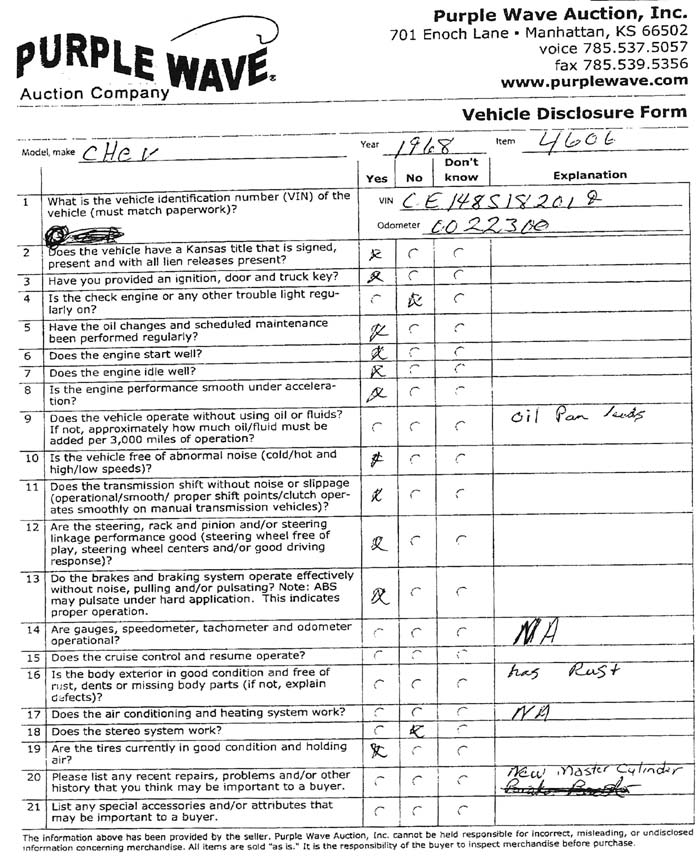 Purple Wave Auction, Inc.
701 Enoch Lane • Manhattan, KS 66502
voice 785.537.5057
fax 785.539.5356
www.purplewave.com
PURPLE WAVE®
Auction Company
Vehicle Disclosure Form
Model, make CHEV Year 1968 Item 4606
Yes No Don't know Explanation
1 What is the vehicle identification number (VIN) of the
vehicle (must match paperwork)?
VIN CE148S182019
Odometer 0022300
2 Does the vehicle have a Kansas title that is signed,
present and with all lien releases present?
3 Have you provided an ignition, door and truck key?
4 Is the check engine or any other trouble light regu-
larly on?
5 Have the oil changes and scheduled maintenance
been performed regularly?
6 Does the engine start well?
7 Does the engine idle well?
8 Is the engine performance smooth under accelera-
tion?
9 Does the vehicle operate without using oil or fluids?
If not, approximately how much oil/fluid must be
added per 3,000 miles of operation?
Oil Pan
10 Is the vehicle free of abnormal noise (cold/hot and
high/low speeds)?
11 Does the transmission shift without noise or slippage
(operational/smooth/ proper shift points/clutch oper-
ates smoothly on manual transmission vehicles)?
12 Are the steering, rack and pinion and/or steering
linkage performance good (steering wheel free of
play, steering wheel centers and/or good driving
response)?
13 Do the brakes and braking system operate effectively
without noise, pulling and/or pulsating? Note: ABS
may pulsate under hard application. This indicates
proper operation.
14 Are gauges, speedometer, tachometer and odometer
operational?
NA
15 Does the cruise control and resume operate?
16 Is the body exterior in good condition and free of
rust, dents or missing body parts (if not, explain
defects)?
has Rust
17 Does the air conditioning and heating system work?
NA
18 Does the stereo system work?
19 Are the tires currently in good condition and holding
air?
20 Please list any recent repairs, problems and/or other
history that you think may be important to a buyer.
New Master Cylinder
21 List any special accessories and/or attributes that
may be important to a buyer.
The information above has been provided by the seller. Purple Wave Auction, Inc. cannot be held responsible for incorrect, misleading, or undisclosed
information concerning merchandise. All items are sold "as is." It is the responsibility of the buyer to inspect merchandise before purchase.